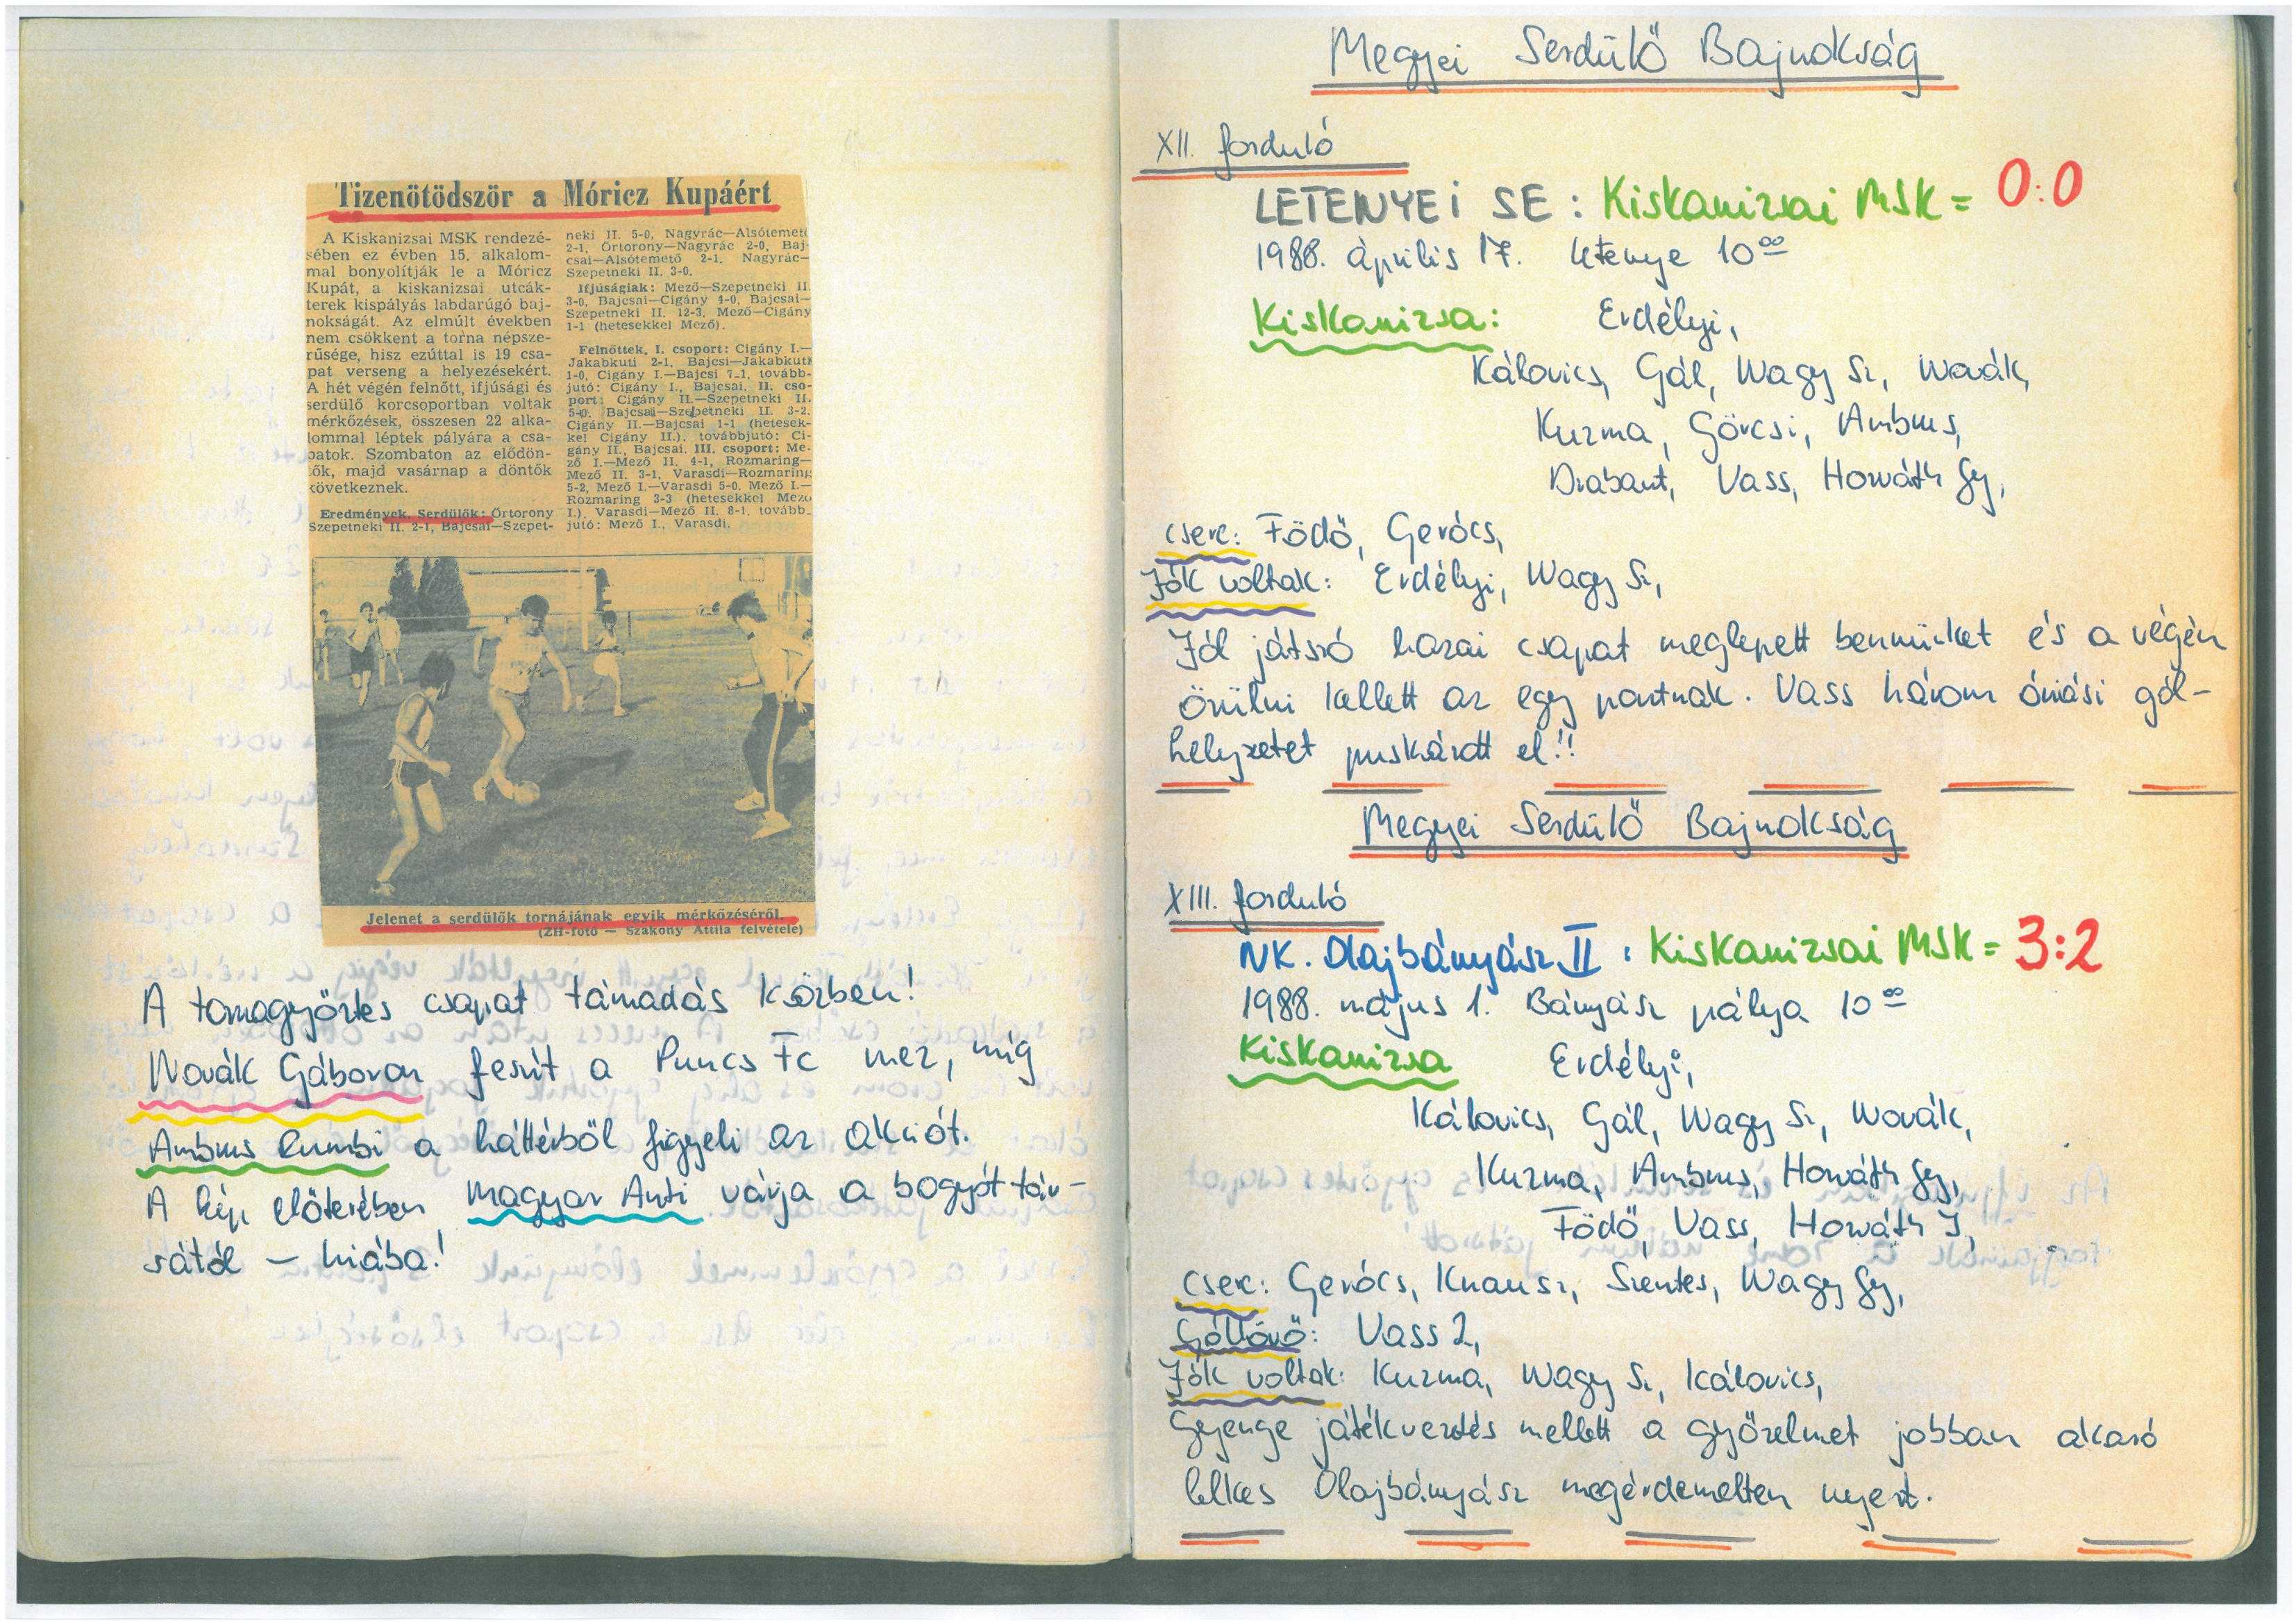 Tizenötödször a Móricz Kupáért
A Kiskanizsai MSK rendezé-
sében ez évben 15. alkalom-
mal bonyolítják le a Móricz
Kupát, a kiskanizsai utcák-
terek kispályás labdarúgó baj-
nokságát. Az elmúlt években
nem csökkent a torna népsze-
rűsége, hisz ezúttal is 19 csa-
pat verseng a helyezésekért.
A hét végén felnőtt, ifjúsági és
serdülő korcsoportban voltak
mérkőzések, összesen 22 alka-
lommal léptek pályára a csa-
patok. Szombaton az elődön-
tők, majd vasárnap a döntők
következnek.
Eredmények. Serdülők: Örtorony
Szepetneki II. 2-1, Bajcsai—Szepet-
neki II. 5-0, Nagyrác—Alsótemető
2-1, Örtorony—Nagyrác 2-0, Baj-
csai—Alsótemető 2-1. Nagyrác—
Szepetneki II. 3-0.
Ifjúságiak: Mező—Szepetneki II.
3-0, Bajcsai—Cigány 4-0, Bajcsai—
Szepetneki II. 12-3, Mező—Cigány
1-1 (hetesekkel Mező).
Felnőttek. I. csoport: Cigány I.—
Jakabkuti 2-1, Bajcsi—Jakabkuti
1-0, Cigány I.—Bajcsi 7-1, tovább-
jutó: Cigány I., Bajcsai. II. cso-
port: Cigány II.—Szepetneki II.
5-0. Bajcsai—Szepetneki II. 3-2.
Cigány II.—Bajcsai 1-1 (hetesek-
kel Cigány II.). továbbjutó: Ci-
gány II., Bajcsai. III. csoport: Me-
ző I.—Mező II. 4-1, Rozmaring—
Mező II. 3-1, Varasdi—Rozmaring
5-2, Mező I.—Varasdi 5-0. Mező I.—
Rozmaring 3-3 (hetesekkel Mező
I.). Varasdi—Mező II. 8-1. tovább-
jutó: Mező I., Varasdi.
Jelenet a serdülők tornájának egyik mérkőzéséről.
(ZH-fotó — Szakony Attila felvétele)
A tornagyőztes csapat támadás közben!
Novák Gáboron feszít a Puncs Fc mez, míg
Ambrus Rumbi a háttérből figyeli az akciót.
A kép előterében Magyar Anti várja a bogyót tár-
sától – hiába!
Megyei Serdülő Bajnokság
XII. forduló
LETENYEI SE : Kiskanizsai MSK = 0:0
1988. április 17. Letenye 10⁰⁰
Kiskanizsa: Erdélyi,
Kálovics, Gál, Nagy Sz, Novák,
Kuzma, Göncsi, Ambrus,
Drabant, Vass, Horváth Gy,
csere: Födő, Gerócs,
Jók voltak: Erdélyi, Nagy Sz,
Jól játszó hazai csapat meglepett bennünket és a végén
örülni kellett az egy pontnak. Vass három óriási gól-
helyzetet puskázott el!!
Megyei Serdülő Bajnokság
XIII. forduló
NK. Olajbányász II : Kiskanizsai MSK = 3:2
1988. május 1. Bányász pálya 10⁰⁰
Kiskanizsa Erdélyi,
Kálovics, Gál, Nagy Sz, Novák,
Kuzma, Ambrus, Horváth Gy,
Födő, Vass, Horváth J,
csere: Gerócs, Knausz, Szentes, Nagy Gy,
Góllövő: Vass 2,
Jók voltak: Kuzma, Nagy Sz, Kálovics,
Gyenge játékvezetés mellett a győzelmet jobban akaró
lelkes Olajbányász megérdemelten nyert.